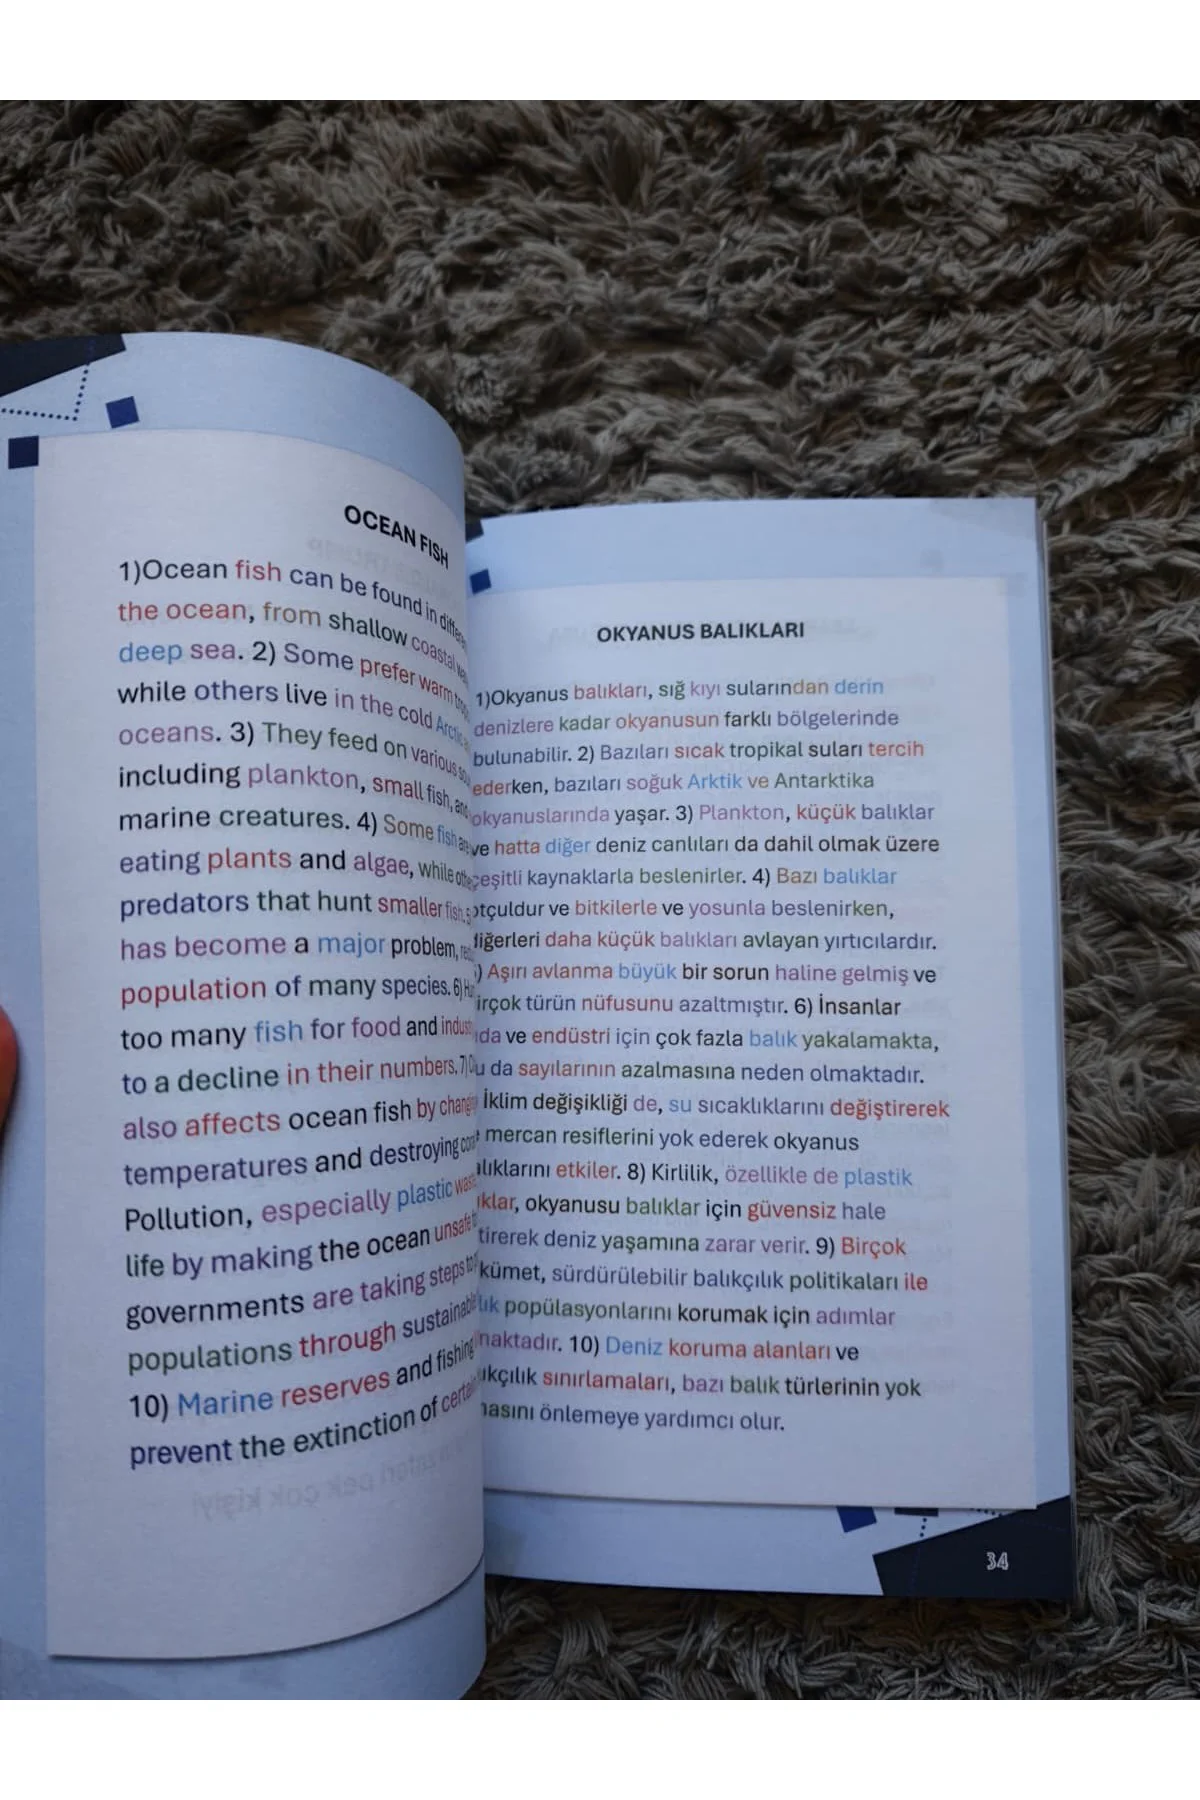 OCEAN FISH
1)Ocean fish can be found in
the ocean, from shallow coastal
deep sea. 2) Some prefer warm
while others live in the cold Arctic
oceans. 3) They feed on various
including plankton, small fish, and
marine creatures. 4) Some fish are
eating plants and algae, while
predators that hunt smaller fish. 5
has become a major problem,
population of many species. 6)
too many fish for food and
to a decline in their numbers. 7)
also affects ocean fish by
temperatures and destroying
Pollution, especially plastic
life by making the ocean unsafe
governments are taking steps to
populations through sustainable
10) Marine reserves and fishing
prevent the extinction of
OKYANUS BALIKLARI
1)Okyanus balıkları, sığ kıyı sularından derin
denizlere kadar okyanusun farklı bölgelerinde
bulunabilir. 2) Bazıları sıcak tropikal suları tercih
ederken, bazıları soğuk Arktik ve Antarktika
okyanuslarında yaşar. 3) Plankton, küçük balıklar
ve hatta diğer deniz canlıları da dahil olmak üzere
çeşitli kaynaklarla beslenirler. 4) Bazı balıklar
otçuldur ve bitkilerle ve yosunla beslenirken,
diğerleri daha küçük balıkları avlayan yırtıcılardır.
) Aşırı avlanma büyük bir sorun haline gelmiş ve
irçok türün nüfusunu azaltmıştır. 6) İnsanlar
ıda ve endüstri için çok fazla balık yakalamakta,
u da sayılarının azalmasına neden olmaktadır.
İklim değişikliği de, su sıcaklıklarını değiştirerek
mercan resiflerini yok ederek okyanus
alıklarını etkiler. 8) Kirlilik, özellikle de plastik
ıklar, okyanusu balıklar için güvensiz hale
tirerek deniz yaşamına zarar verir. 9) Birçok
kümet, sürdürülebilir balıkçılık politikaları ile
lık popülasyonlarını korumak için adımlar
maktadır. 10) Deniz koruma alanları ve
ıkçılık sınırlamaları, bazı balık türlerinin yok
masını önlemeye yardımcı olur.
34